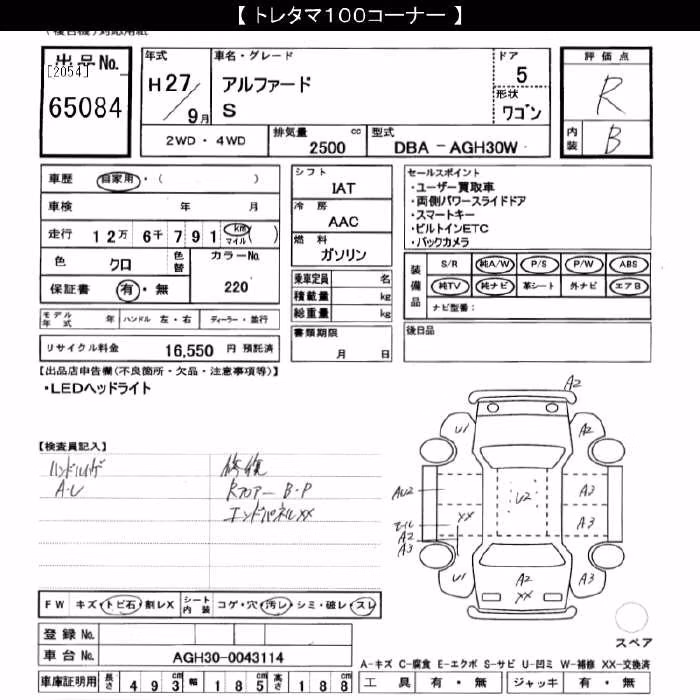 【 トレタマ１００コーナー 】
出品No. [2054] 65084
年式 H27/9月
車名・グレード アルファード S
ドア 5
形状 ワゴン
評価点 R
内装 B
2WD・4WD
排気量 2500 cc
型式 DBA－AGH30W
車歴 自家用・( )
車検 年 月
走行 12万 6千 791 km マイル ( )
色 クロ 色替 カラーNo. 220
保証書 有・無
シフト IAT
冷房 AAC
燃料 ガソリン
乗車定員 名
積載量 kg
総重量 kg
書類期限 月 日
セールスポイント
・ユーザー買取車
・両側パワースライドドア
・スマートキー
・ビルトインETC
・バックカメラ
装備品 S/R 純A/W P/S P/W ABS
純TV 純ナビ 革シート 外ナビ エアB
ナビ型番：
モデル年式 年 ハンドル 左・右 ディーラー・並行
後日品
リサイクル料金 16,550 円 預託済
【出品店申告欄(不良箇所・欠品・注意事項等)】
・LEDヘッドライト
【検査員記入】
A・U
修復
Rフロアー B・P
エンドパネルXX
A2
U1 A2
AU2 U2 A3
XX A3
A2
A3
U1 A2 A3
XX
スペア
FW キズ・トビ石・割レX シート内装 コゲ・穴・汚レ・シミ・破レ・スレ
登録No.
車台No. AGH30-0043114
A-キズ C-腐食 E-エクボ S-サビ U-凹ミ W-補修 XX-交換済
車庫証明用 長さ 493cm 幅 185cm 高さ 188
工具 有・無 ジャッキ 有・無